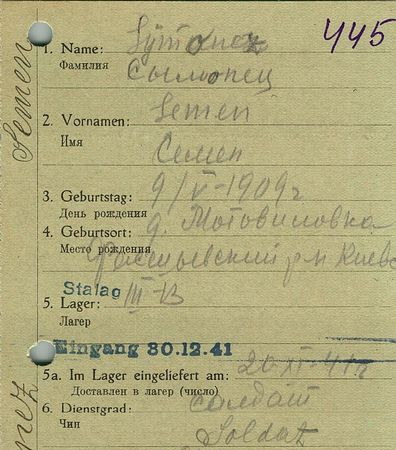 445
1. Name:
Фамилия
2. Vornamen: Semen
Имя Семен
3. Geburtstag: 9/V-1909г
День рождения
4. Geburtsort: д. Мотовиловка
Место рождения Фастовский р-н Киевс
Stalag III-B
5. Lager:
Лагерь
Eingang 30.12.41
5a. Im Lager eingeliefert am: 20-XI-41г
Доставлен в лагерь (число)
6. Dienstgrad: солдат
Чин Soldat
Semen